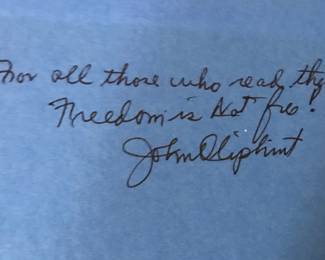 For all those who read thy
Freedom is Not free!
John Oliphint